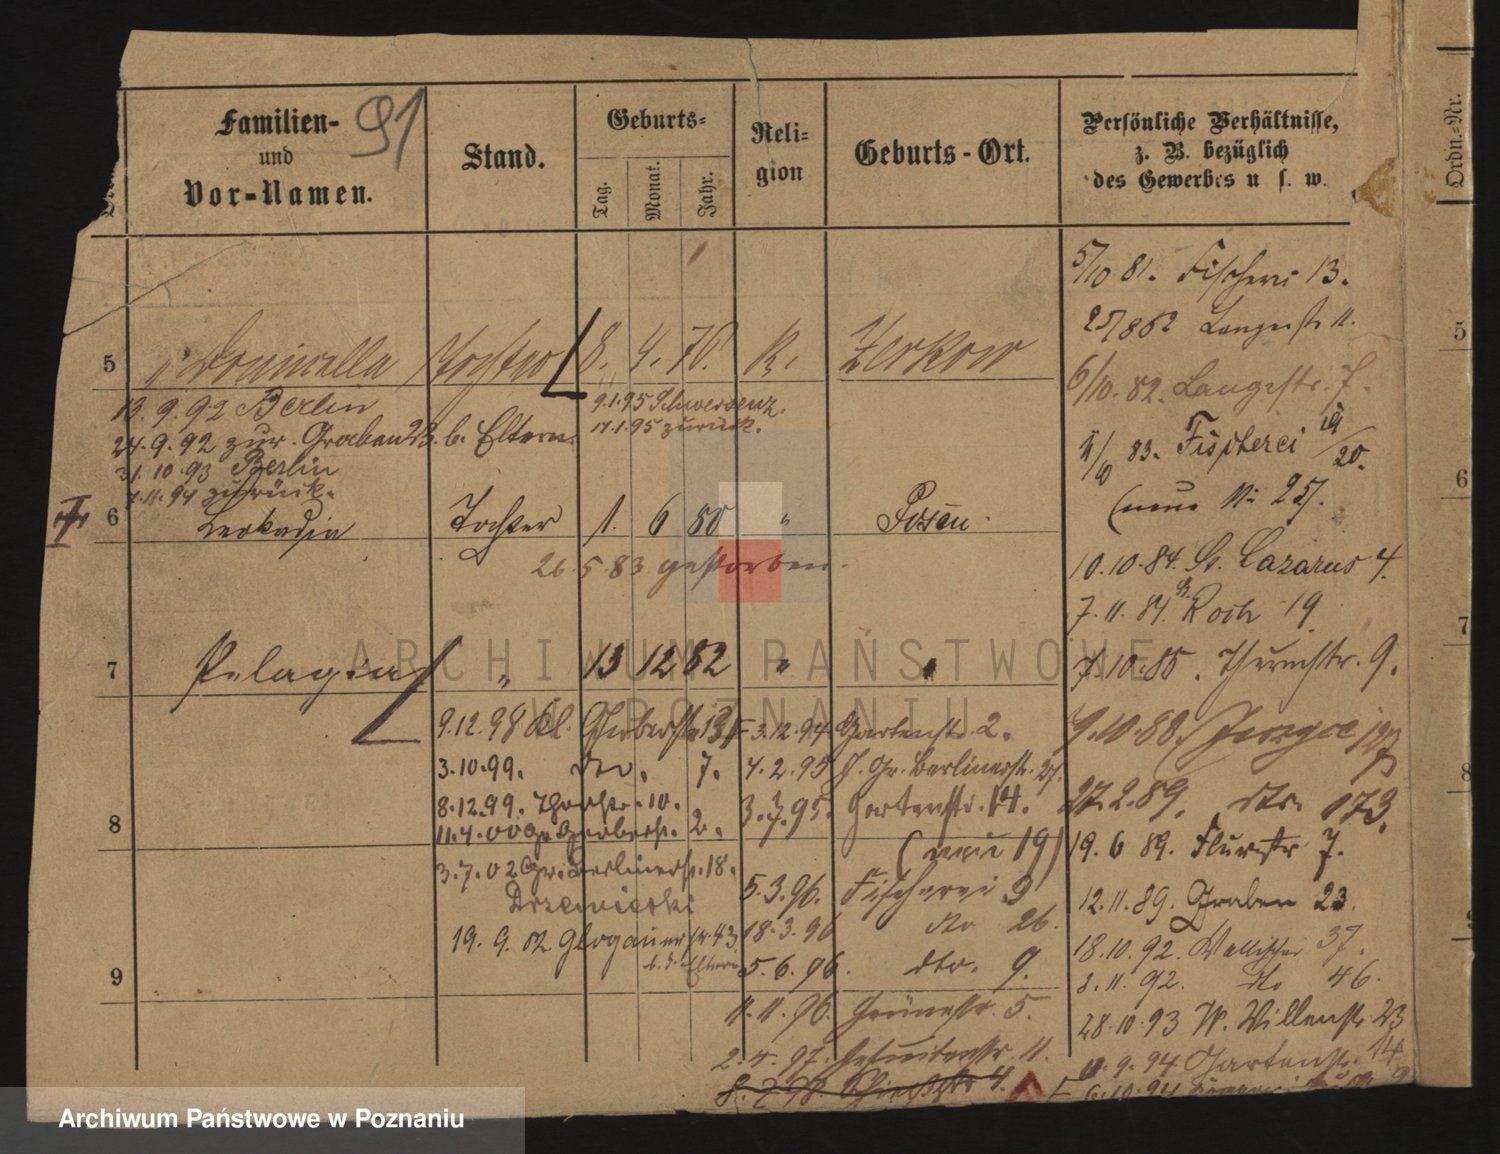 Familien-
und
Vor-Namen.
91
Stand.
Geburts-
Tag.
Monat.
Jahr.
Reli-
gion
Geburts-Ort.
Persönliche Verhältnisse,
z. B. bezüglich
des Gewerbes u. s. w.
Ordn.-Nr.
5/10 81. Fischerei 13.
Langestr. 11.
5
Tochter
8. 4. 76.
K.
Zerkow
6/10. 82. Langestr. 7.
9.1.95 Schwersenz.
17.1.95 zurück.
13.9.92 Berlin
24.9.92 zur. Graben 23. b. Eltern.
31.10.93 Berlin
7.11.94 zurück.
83. Fischerei 19/20.
(neue Nr 25).
6
Leokadia
Tochter
1. 6 80
"
Posen.
26.5.83 gestorben.
10.10.84. St. Lazarus 4.
7.11.84. St. Roch 19.
7
Pelagia
"
13 12 82
"
"
7.10.85. Thurmstr. 9.
9.12.98 Kl. Gerberstr. 13
3.10.99. dto. 7.
8.12.99. Thorstr. 10.
11.4.00 Gr. Gerberstr. 2.
3.7.02 Gr. Berlinerstr. 18.
Drzewiecki
19.9.02. Glogauerstr. 43
b. d. Eltern
8
9
3.12.94 Gartenstr. 2.
4.2.95 Gr. Berlinerstr. 27.
3.7.95. Gartenstr. 14.
(neue 19)
5.3.96. Fischerei 9
18.3.96 dto 26.
5.6.96. dto. 9.
11.11.96. Grünestr. 5.
2.4.97. Jesuitenstr. 11.
9.10.88.
27.2.89. dto. 173.
19.6 89. Flurstr 7.
12.11.89. Graben 23.
18.10.92. Wallischei 37.
3.11.92. do 46.
28.10.93 W. Villenstr. 23
9.94 Gartenstr. 14
6.10.94
5
6
7
8
ARCHIWUM PAŃSTWOWE
W POZNANIU
Archiwum Państwowe w Poznaniu